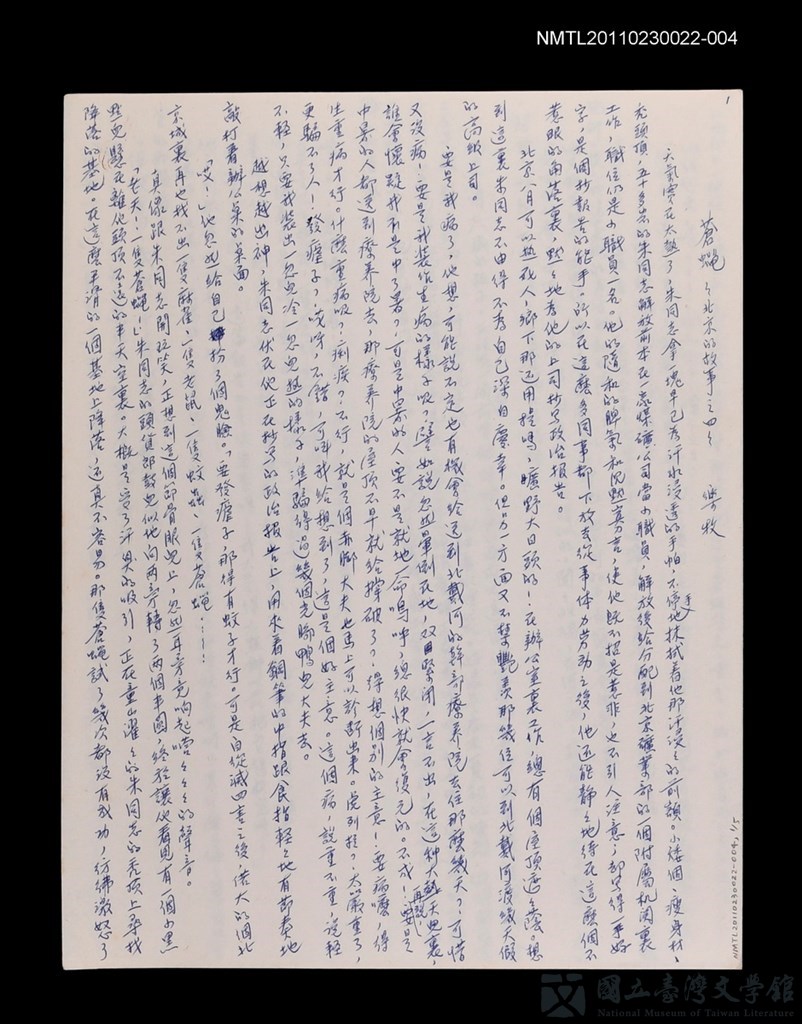 NMTL20110230022-004
1
蒼蠅 ~北京的故事之四~ 樂牧
天氣實在太熱了，朱同志拿一塊早已為汗水浸透的手帕，不停地抹拭着他那汗淡淡的前額。小矮個、瘦身材、
禿頭頂，五十多歲的朱同志解放前本在一家煤礦公司當小職員，解放後給分配到北京礦業部的一個附屬机関裏
工作，職位仍是小職員一名。他的隨和的脾氣和沉默寡言，使他既不招是惹非，也不引人注意，却寫得一手好
字，是個抄報告的能手。所以在這麼多同事都下放去從事体力劳动之後，他还能靜靜地待在這麼個不
惹眼的角落裏，默默地為他的上司抄寫政治報告。
北京八月可以熱死人，鄉下那还用提嗎，曠野大日頭的！在辦公室裏工作，總有個屋頂遮遮蔭。想
到這裏朱同志不由得不為自己深自慶幸。但另一方面又不禁艷羨那幾位可以到北戴河渡幾天假
的高級上司。
要是我病了，他想，可能說不定也有機會給送到北戴河的幹部療养院去住那麼幾天？可惜
又沒病！要是我裝作生病的樣子呢？譬如說忽然暈倒在地，双目緊闭，一言不出，在這种大熱天地裏，
誰會懷疑我不是中了暑？可是中暑的人，要不是就地一命嗚呼，總很快就會復元的。不成！再說，要是
中暑的人都送到療养院去，那療养院的屋頂不早就給撑破了？得想個別的主意！要病嚒，得
生重病才行。什麼重病呢？痢疾？不行，就是個赤脚大夫也馬上可以診断出來。虎列拉？太嚴重了，
更騙不了人！發瘧子？哎呀，不錯，可叫我給想到了，這是個好主意。這個病，說重不重，說輕
不輕，只要我装出一忽兒冷一忽兒熱的樣子，準騙得過幾個光脚鴨兒大夫去。
越想越出神，朱同志伏在他正在抄寫的政治報告上，用夾着鋼筆的中指跟食指輕輕地有節奏地
敲打着辦公桌的桌面。
「哎！」他忽然給自己扮了個鬼臉。「要發瘧子，那得有蚊子才行。可是自從滅四害之後，偌大的個北
京城裏再也找不出一隻麻雀、一隻老鼠、一隻蚊蟲、一隻蒼蠅……」
真像跟朱同志開玩笑，正想到這個節骨眼兒上，忽然耳旁竟响起嗡嗡嗡的聲音。
「老天！一隻蒼蠅！」朱同志的頭貨郎鼓兒似地向兩旁轉了兩個半圓，終於讓他看見有一個小黑
點兒懸在離他頭頂不遠的半天空裏。大概是受了汗臭的吸引，正在童山濯濯的朱同志的禿頂上尋找
降落的基地。在這麼平滑的一個基地上降落，还真不容易。那隻蒼蠅試了幾次都沒有成功，彷彿激怒了
NMTL20110230022-004, 1/5
國立臺灣文學館
National Museum of Taiwan Literature